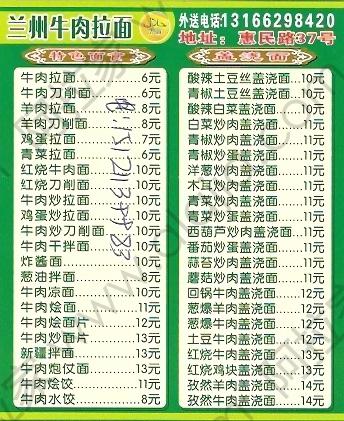 兰州牛肉拉面
外送电话13166298420
地址：惠民路37号
特色面食
牛肉拉面 6元
牛肉刀削面 6元
羊肉拉面 8元
羊肉刀削面 8元
鸡蛋拉面 7元
青菜拉面 6元
红烧牛肉面 10元
红烧刀削面 10元
牛肉炒拉面 10元
鸡蛋炒拉面 10元
牛肉炒刀削面 10元
牛肉干拌面 10元
炸酱面 10元
葱油拌面 8元
牛肉凉面 10元
牛肉烩面 11元
牛肉烩面片 12元
新疆拌面 13元
牛肉炮仗面 13元
牛肉烩饺 11元
牛肉水饺 8元
盖浇面
酸辣土豆丝盖浇面 10元
青椒土豆丝盖浇面 10元
酸辣白菜盖浇面 10元
白菜炒肉盖浇面 11元
青椒炒肉盖浇面 11元
青椒炒蛋盖浇面 11元
洋葱炒肉盖浇面 11元
木耳炒肉盖浇面 11元
青菜炒肉盖浇面 11元
青菜炒蛋盖浇面 11元
西葫芦炒肉盖浇面 11元
番茄炒蛋盖浇面 11元
蒜苔炒肉盖浇面 11元
蘑菇炒肉盖浇面 11元
回锅牛肉盖浇面 12元
葱爆羊肉盖浇面 12元
葱爆牛肉盖浇面 12元
土豆牛肉盖浇面 12元
红烧牛肉盖浇面 13元
红烧鸡块盖浇面 13元
孜然羊肉盖浇面 14元
孜然牛肉盖浇面 14元